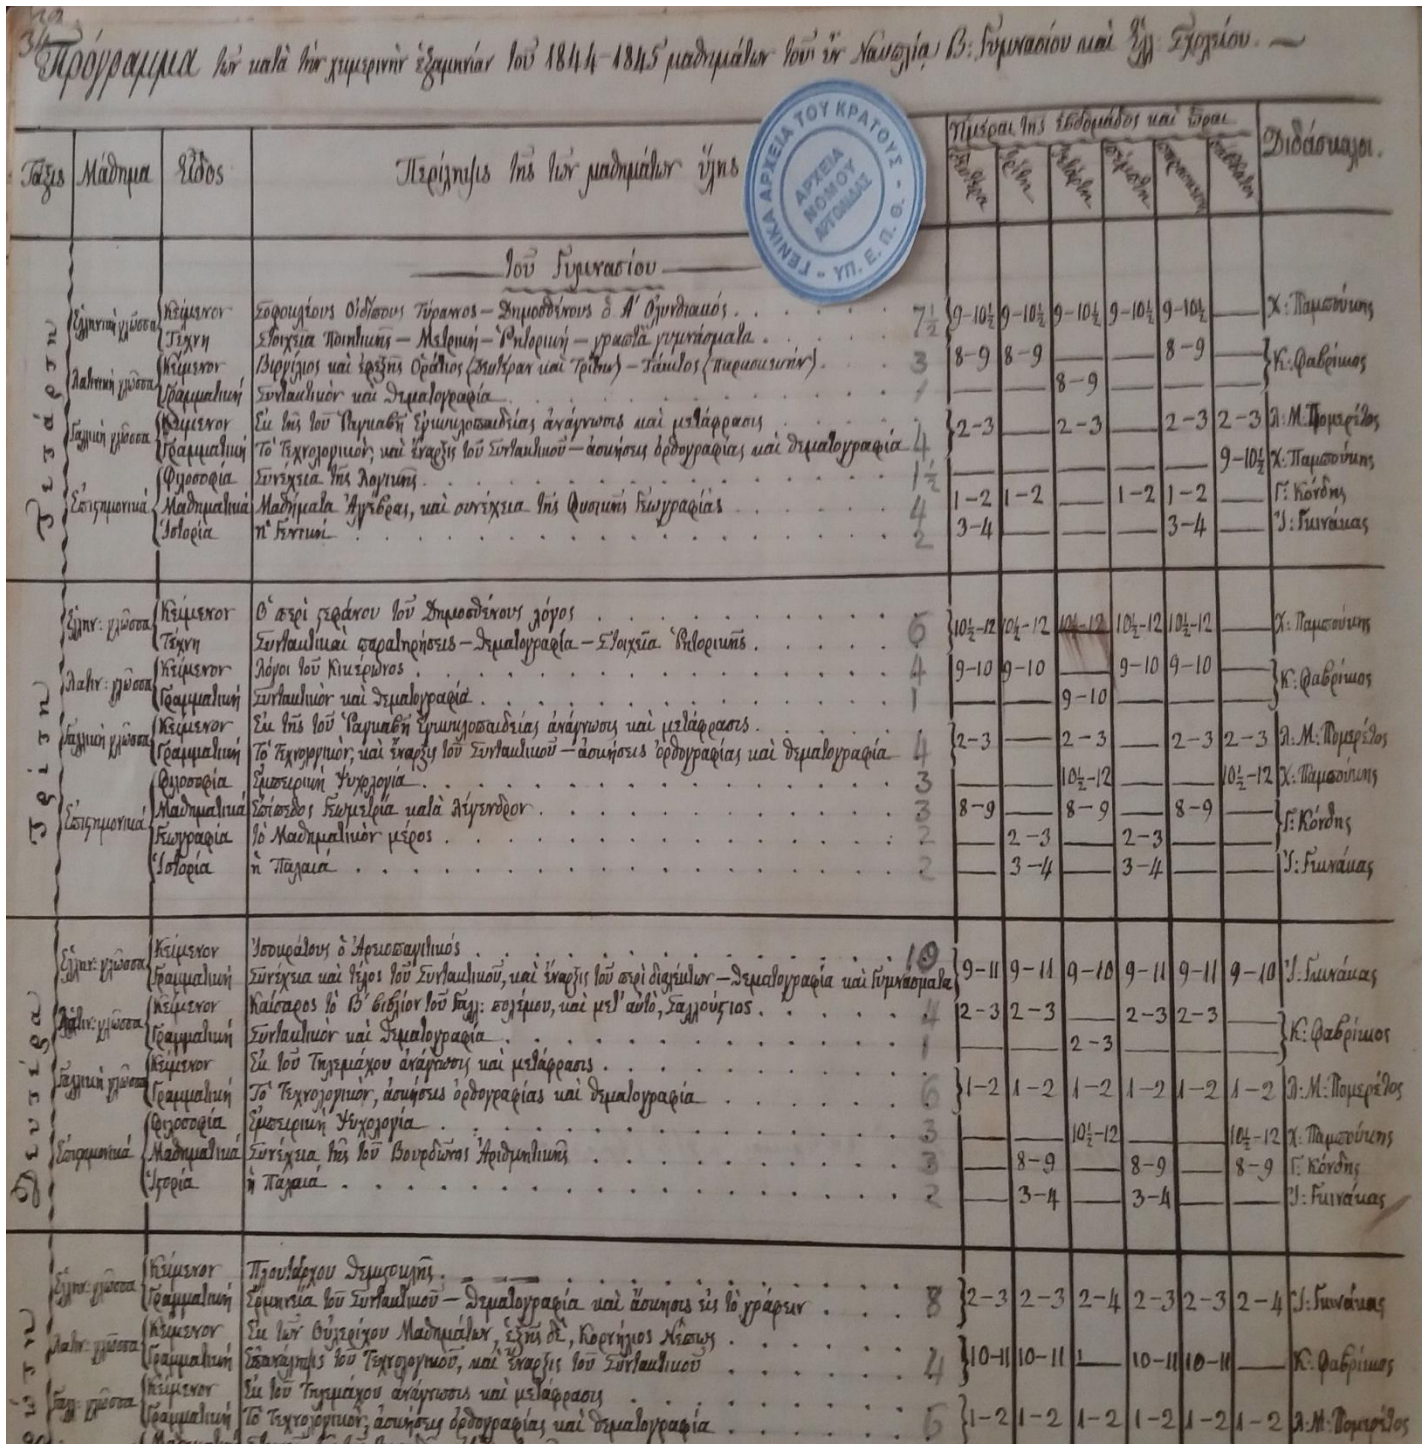 Πρόγραμμα τῶν κατὰ τὴν χειμερινὴν ἑξαμηνίαν τοῦ 1844-1845 μαθημάτων τοῦ ἐν Ναυπλίᾳ Β: Γυμνασίου καὶ Ἑλλ: Σχολείου.
Τάξις Μάθημα Εἶδος Περίληψις τῆς τῶν μαθημάτων ὕλης Ἡμέραι τῆς ἑβδομάδος καὶ ὧραι Διδάσκαλοι.
Δευτέρα Τρίτη Τετάρτη Πέμπτη Παρασκευὴ Σάββατον
ΓΕΝΙΚΑ ΑΡΧΕΙΑ ΤΟΥ ΚΡΑΤΟΥΣ - ΥΠ. Ε. Π. Θ. -
ΑΡΧΕΙΑ
ΝΟΜΟΥ
ΑΡΓΟΛΙΔΑΣ
τοῦ Γυμνασίου
Τετάρτη
Ἑλληνικὴ γλῶσσα Κείμενον Σοφοκλέους Οἰδίπους Τύραννος - Δημοσθένους ὁ Α' Ὀλυνθιακός. 7½ 9-10½ 9-10½ 9-10½ 9-10½ 9-10½ — Χ: Παμπούκης
Τέχνη Στοιχεῖα Ποιητικῆς - Μετρική - Ῥητορική - γραπτὰ γυμνάσματα.
Λατινικὴ γλῶσσα Κείμενον Βιργίλιος καὶ ἐφεξῆς Ὁράτιος (Δευτέραν καὶ Τρίτην) - Τάκιτος (παρασκευήν). 3 8-9 8-9 — — 8-9 — Κ: Φαβρίκιος
Γραμματικὴ Συντακτικὸν καὶ θεματογραφία. 1 — — 8-9 — — —
Γαλλικὴ γλῶσσα Κείμενον Ἐκ τῆς τοῦ Ῥαγκαβῆ Ἐγκυκλοπαιδείας ἀνάγνωσις καὶ μετάφρασις 2-3 — 2-3 — 2-3 2-3 Λ: Μ: Πομερέτος
Γραμματικὴ Τὸ Τεχνολογικόν, καὶ ἔναρξις τοῦ Συντακτικοῦ - ἀσκήσεις ὀρθογραφίας καὶ θεματογραφία 4
Ἐπιστημονικὰ Φιλοσοφία Συνέχεια τῆς Λογικῆς. 1½ — — — — — 9-10½ Χ: Παμπούκης
Μαθηματικὰ Μαθήματα Ἀλγέβρας, καὶ συνέχεια τῆς Φυσικῆς Γεωγραφίας 4 1-2 1-2 — 1-2 1-2 — Γ: Κόνδης
Ἱστορία ἡ Γενική 2 3-4 — — — 3-4 — Ἰ: Γκινάκας
Τρίτη
Ἑλλην: γλῶσσα Κείμενον Ὁ περὶ στεφάνου τοῦ Δημοσθένους λόγος 6 10½-12 10½-12 10½-12 10½-12 10½-12 — Χ: Παμπούκης
Τέχνη Συντακτικαὶ παρατηρήσεις - Θεματογραφία - Στοιχεῖα Ῥητορικῆς
Λατιν: γλῶσσα Κείμενον Λόγοι τοῦ Κικέρωνος 4 9-10 9-10 — 9-10 9-10 — Κ: Φαβρίκιος
Γραμματικὴ Συντακτικὸν καὶ θεματογραφία. 1 — — 9-10 — — —
Γαλλικὴ γλῶσσα Κείμενον Ἐκ τῆς τοῦ Ῥαγκαβῆ Ἐγκυκλοπαιδείας ἀνάγνωσις καὶ μετάφρασις.
Γραμματικὴ Τὸ Τεχνολογικόν, καὶ ἔναρξις τοῦ Συντακτικοῦ - ἀσκήσεις ὀρθογραφίας καὶ θεματογραφία 4 2-3 — 2-3 — 2-3 2-3 Λ: Μ: Πομερέτος
Ἐπιστημονικὰ Φιλοσοφία Ἐμπειρικὴ Ψυχολογία 3 — — 10½-12 — — 10½-12 Χ: Παμπούκης
Μαθηματικὰ Ἐπίπεδος Γεωμετρία κατὰ Λέγενδρον 3 8-9 — 8-9 — 8-9 — Γ: Κόνδης
Γεωγραφία τὸ Μαθηματικὸν μέρος 2 — 2-3 — 2-3 — —
Ἱστορία ἡ Παλαιά 2 — 3-4 — 3-4 — — Ἰ: Γκινάκας
Δευτέρα
Ἑλλην: γλῶσσα Κείμενον Ἰσοκράτους ὁ Ἀρειοπαγιτικός 10
Γραμματικὴ Συνέχεια καὶ τέλος τοῦ Συντακτικοῦ, καὶ ἔναρξις τοῦ περὶ διαλέκτων - Θεματογραφία καὶ Γυμνάσματα 9-11 9-11 9-10 9-11 9-11 9-10 Ἰ: Γκινάκας
Λατιν: γλῶσσα Κείμενον Καίσαρος τὸ Β' βιβλίον τοῦ Γαλλ: πολέμου, καὶ μετ' αὐτό, Σαλλούστιος. 4 2-3 2-3 — 2-3 2-3 — Κ: Φαβρίκιος
Γραμματικὴ Συντακτικὸν καὶ θεματογραφία 1 — — 2-3 — — —
Γαλλικὴ γλῶσσα Κείμενον Ἐκ τοῦ Τηλεμάχου ἀνάγνωσις καὶ μετάφρασις
Γραμματικὴ Τὸ Τεχνολογικόν, ἀσκήσεις ὀρθογραφίας καὶ θεματογραφία 6 1-2 1-2 1-2 1-2 1-2 1-2 Λ: Μ: Πομερέτος
Ἐπιστημονικὰ Φιλοσοφία Ἐμπειρικὴ Ψυχολογία 3 — — 10½-12 — — 10½-12 Χ: Παμπούκης
Μαθηματικὰ Συνέχεια τῆς τοῦ Βουρδῶνος Ἀριθμητικῆς 3 — 8-9 — 8-9 — 8-9 Γ: Κόνδης
Ἱστορία ἡ Παλαιά 2 — 3-4 — 3-4 — — Ἰ: Γκινάκας
Ἑλλην: γλῶσσα Κείμενον Πλουτάρχου Θεμιστοκλῆς
Γραμματικὴ Ἑρμηνεία τοῦ Συντακτικοῦ - Θεματογραφία καὶ ἄσκησις εἰς τὸ γράφειν 8 2-3 2-3 2-4 2-3 2-3 2-4 Ἰ: Γκινάκας
Λατιν: γλῶσσα Κείμενον Ἐκ τῶν Οὐλερίχου Μαθημάτων, ἑξῆς δέ, Κορνήλιος Νέπως
Γραμματικὴ Ἐπανάληψις τοῦ Τεχνολογικοῦ, καὶ ἔναρξις τοῦ Συντακτικοῦ 4 10-11 10-11 — 10-11 10-11 — Κ: Φαβρίκιος
Γαλλ: γλῶσσα Κείμενον Ἐκ τοῦ Τηλεμάχου ἀνάγνωσις καὶ μετάφρασις
Γραμματικὴ Τὸ Τεχνολογικόν, ἀσκήσεις ὀρθογραφίας καὶ θεματογραφία 6 1-2 1-2 1-2 1-2 1-2 1-2 Λ: Μ: Πομερέτος